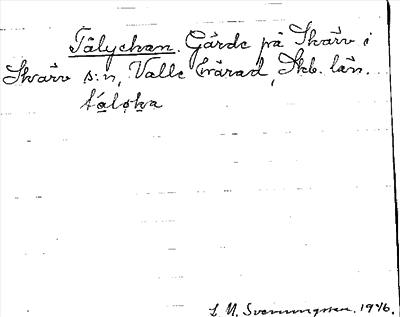 Tålychan. Gärde på Skärv i
Skärv s:n, Valle härad, Skb. län.
tá̱lo̱ḵa
S. M. Svenungsson. 1946.